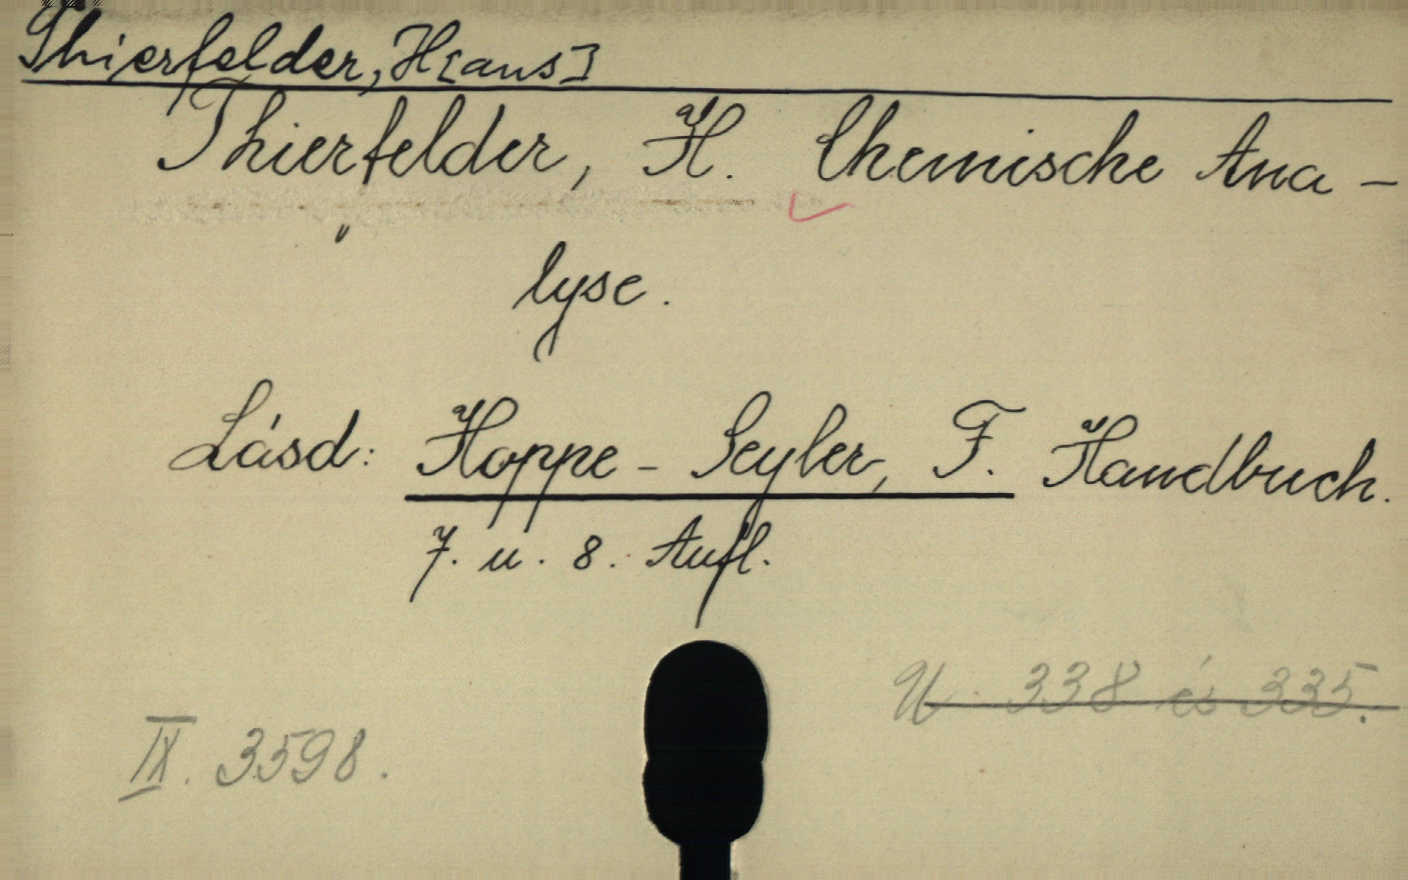 Thierfelder, H[ans]
Thierfelder, H. Chemische Ana-
lyse.
Lásd: Hoppe-Seyler, F. Handbuch.
7. u. 8. Aufl.
U. 338 és 335.
IX. 3598.